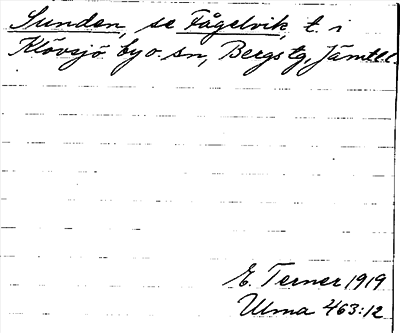 Sunden, se Fågelvik, t. i
Klövsjö by o. sn, Bergs tg, Jämtl l.
E. Terner 1919
Ulma 463:12